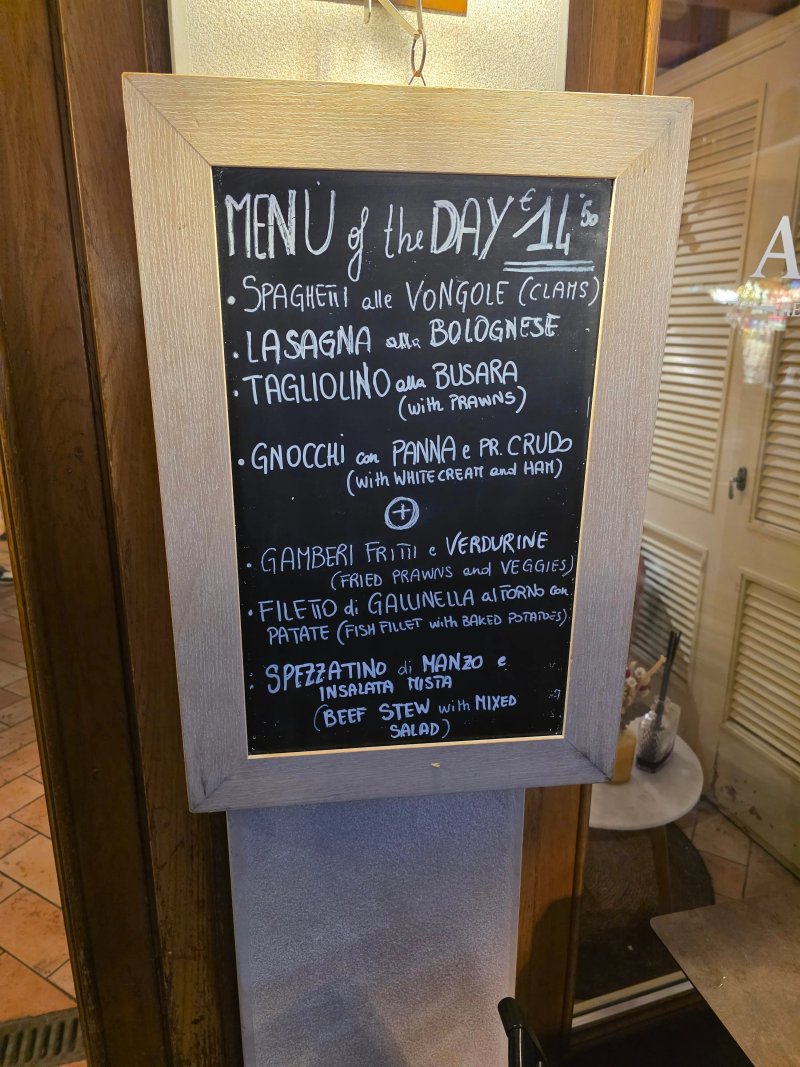 MENÙ of the DAY € 14,50
• SPAGHETTI alle VONGOLE (CLAMS)
• LASAGNA alla BOLOGNESE
• TAGLIOLINO alla BUSARA
(with PRAWNS)
• GNOCCHI con PANNA e PR. CRUDO
(with WHITE CREAM and HAM)
+
• GAMBERI FRITTI e VERDURINE
(FRIED PRAWNS and VEGGIES)
• FILETTO di GALLINELLA al FORNO con
PATATE (FISH FILLET with BAKED POTATOES)
• SPEZZATINO di MANZO e
INSALATA MISTA
(BEEF STEW with MIXED
SALAD)
A